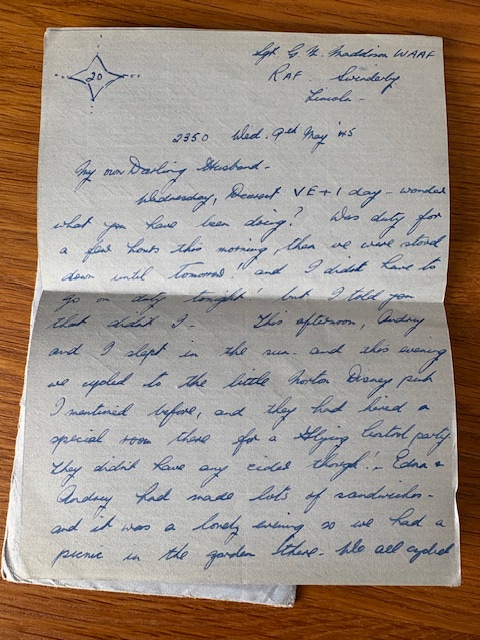 20
Sgt. G. M. Maddison WAAF
RAF. Swinderby
Lincoln -
2350 Wed. 9th May '45
My own Darling Husband -
Wednesday, Dearest VE+1 day - wonder
what you have been doing? Was duty for
a few hours this morning, then we were stood
down until tomorrow! and I didn't have to
go on duty tonight! but I told you
that didn't I - This afternoon, Audrey
and I slept in the sun - and this evening
we cycled to the little Norton Disney pub
I mentioned before, and they had hired a
special room there for a Flying Control party.
They didn't have any cider though! - Edna &
Audrey had made lots of sandwiches -
and it was a lovely evening so we had a
picnic in the garden there - We all cycled